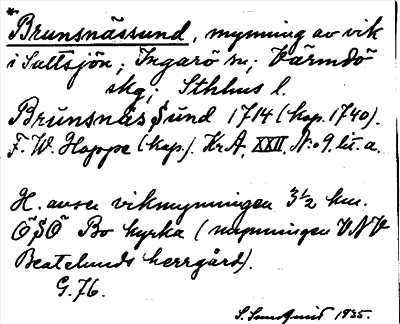 *Brunsnässund, mynning av vik
i Saltsjön; Ingarö sn; Värmdö
skg; Sthlms l.
Brunsnäs Sund 1714 (kop. 1740).
F. W. Hoppe (kop.). Kr.A. XXII. N:o 9. lit. a.
H. avser vikmynningen 3½ km.
ÖSÖ Bo kyrka (mynningen VNV
Beatelunds herrgård).
G. 76.
1935.